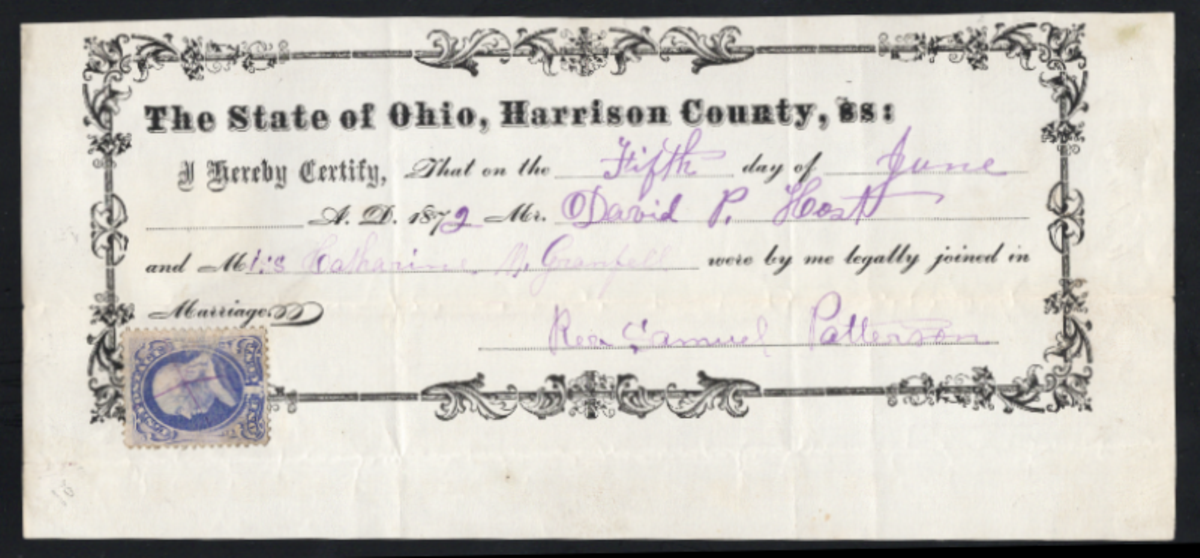 The State of Ohio, Harrison County, ss:
I Hereby Certify, That on the Fifth day of June
A. D. 1872 Mr. David P. Host
and Miss Katharine M. Granfell were by me legally joined in
Marriage.
Rev Samuel Patterson